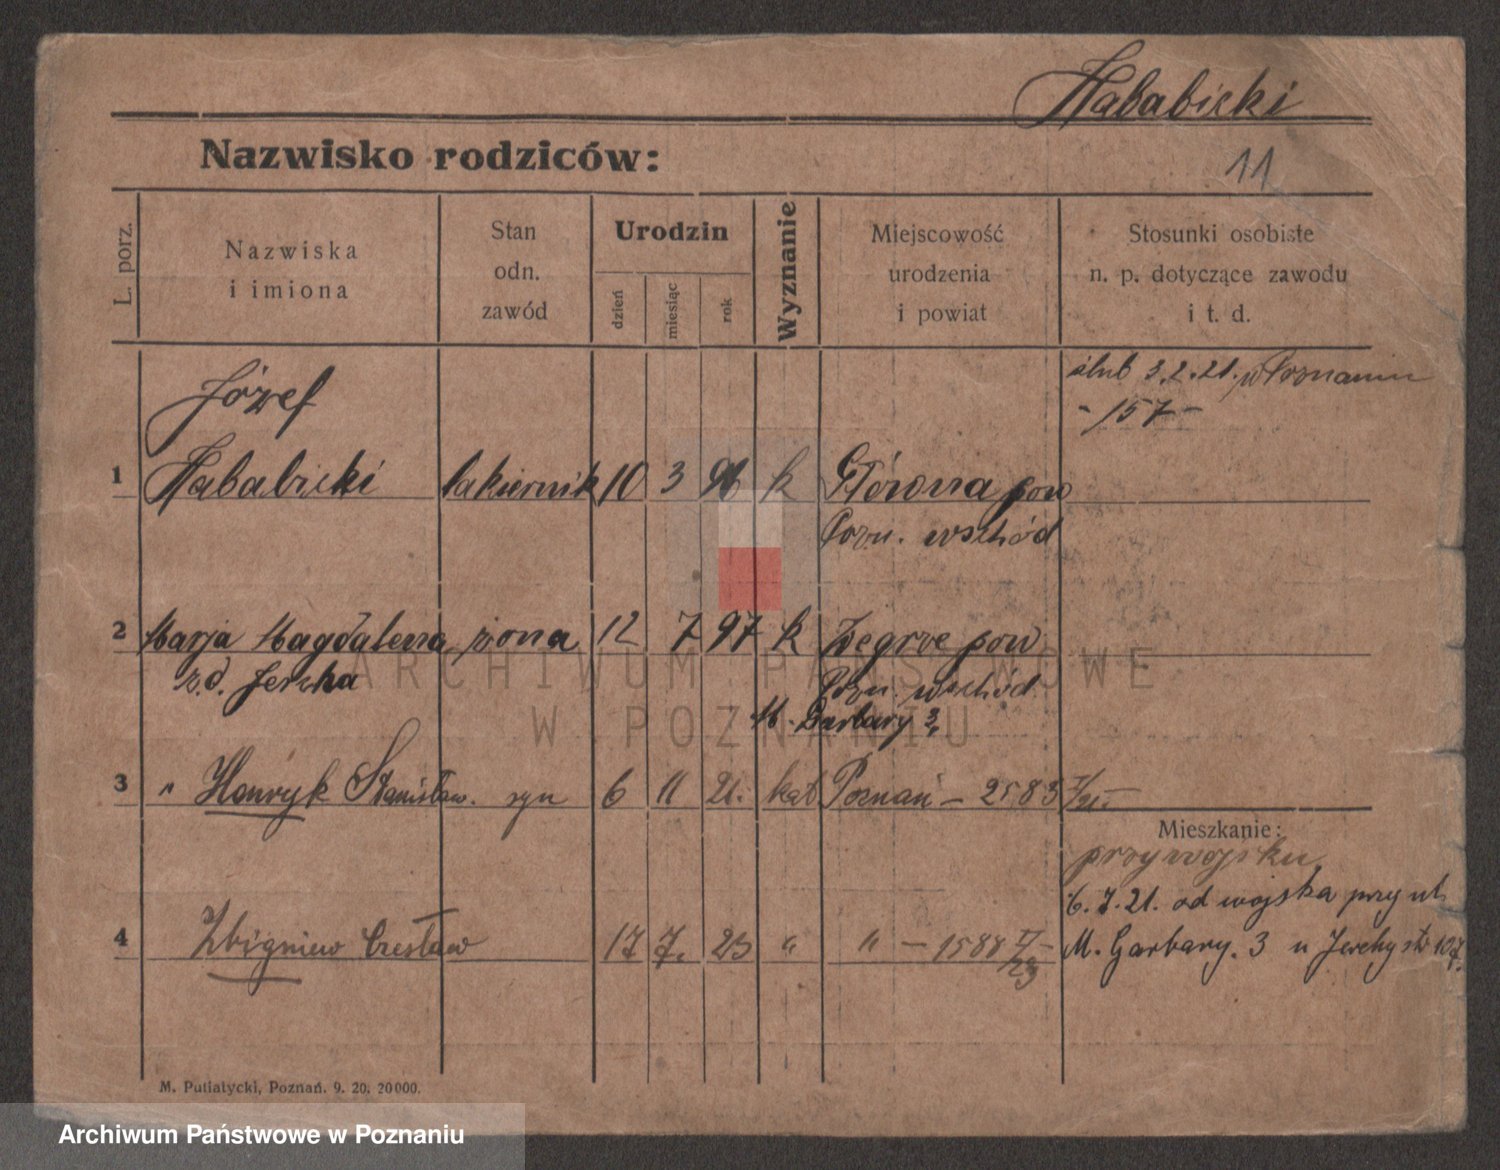 Hababicki
Nazwisko rodziców:
11
L. porz.
Nazwiska
i imiona
Stan
odn.
zawód
Urodzin
dzień
miesiąc
rok
Wyznanie
Miejscowość
urodzenia
i powiat
Stosunki osobiste
n. p. dotyczące zawodu
i t. d.
ślub 3.2.21. w Poznaniu
- 157 -
Józef
1 Hababicki lakiernik 10 3 96 k Główna pow
Pozn. wschód
2 Marja Magdalena żona 12 7 97 k Zegrze pow
z d. Jerzka Pozn. wschód
M. Garbary 3,
3 " Henryk Stanisław. syn 6 11 21. kat Poznań - 2583
Mieszkanie:
przy wojsku
6. 7. 21. od wojska przy ul.
4 Zbigniew Czesław 17 7. 23 " " - 1588
M. Garbary. 3 u
M. Putiatycki, Poznań. 9. 20. 20000.
ARCHIWUM PAŃSTWOWE
W POZNANIU
Archiwum Państwowe w Poznaniu